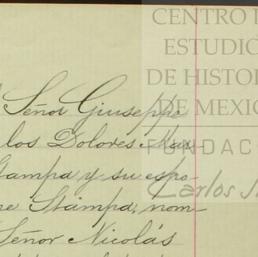 CENTRO
ESTUDIO
DE HISTOR
DE MEXIC
FUNDAC
Carlos S
Señor Giuseppe
los Dolores Mar-
tampa y su espo-
Stampa, nom-
Señor Nicolás